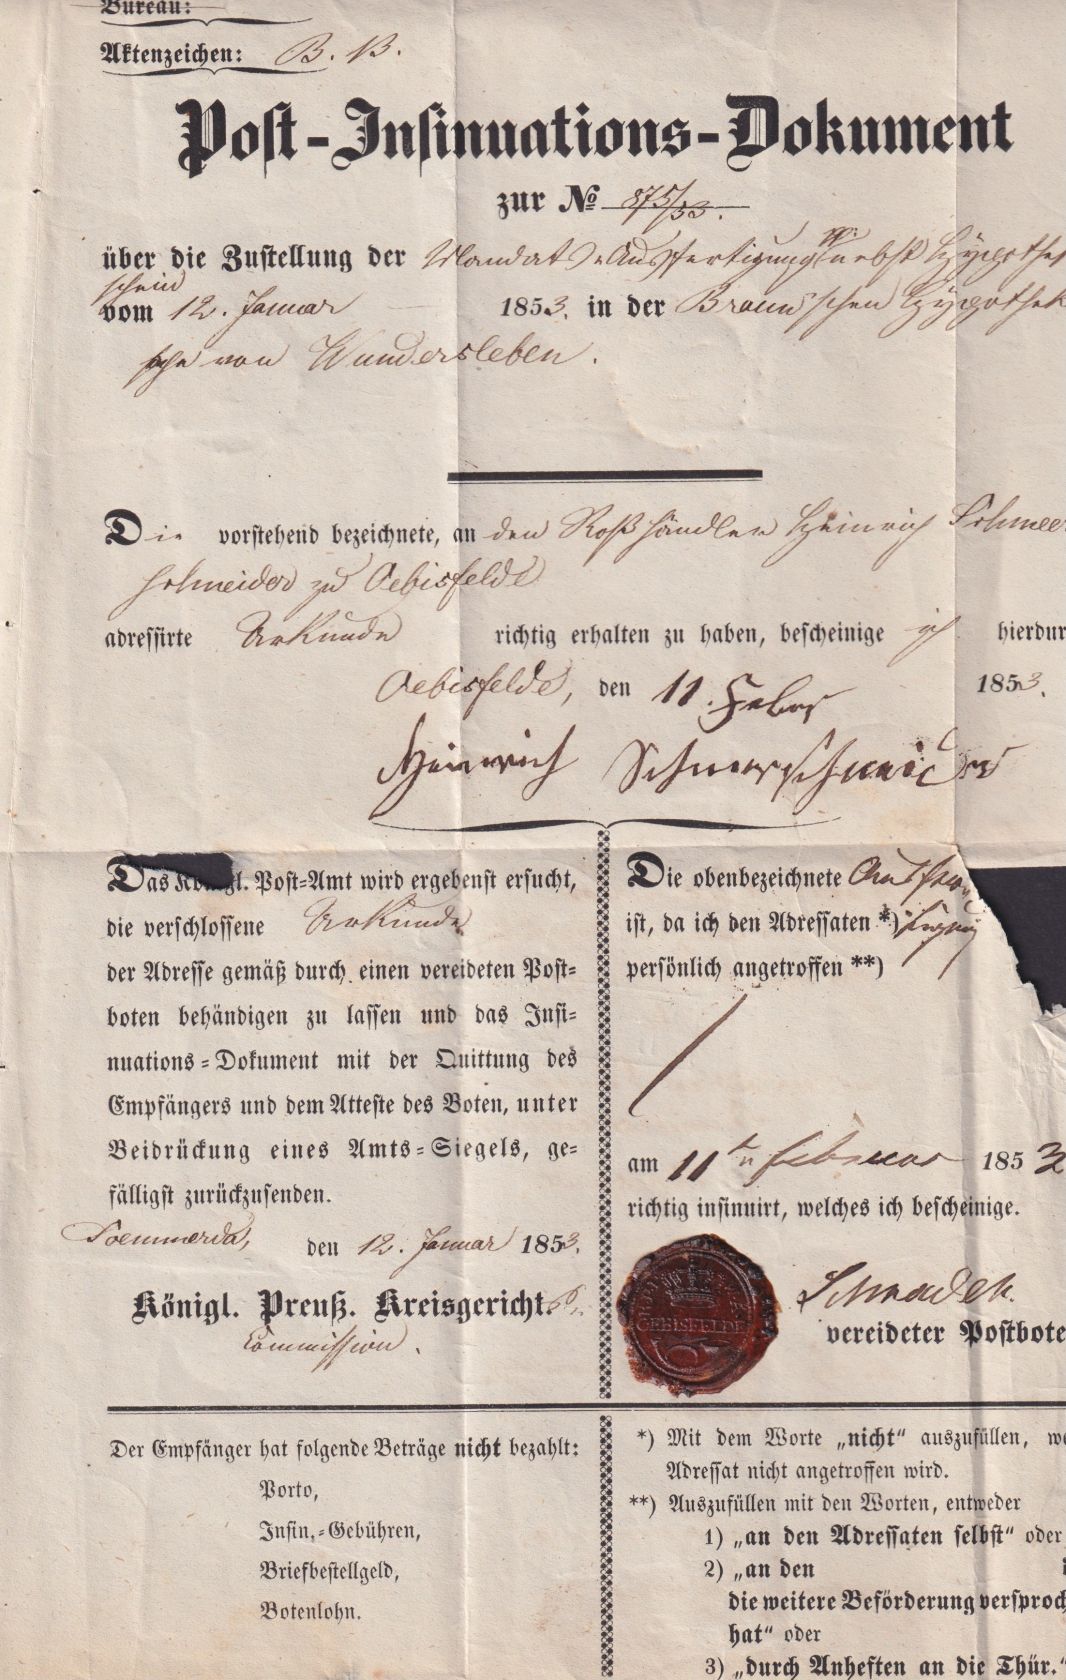 Bureau:
Aktenzeichen: B. B.
Post-Insinuations-Dokument
zur No 875/53.
über die Zustellung der Mandats-Ausfertigung nebst Hypothe
schein
vom 12. Januar 1853. in der Braun'schen Hypothek
sache von Wundersleben.
Die vorstehend bezeichnete, an den Roßhändler Heinrich Schmer
schneider zu Oebisfelde
adressirte Urkunde richtig erhalten zu haben, bescheinige ich hierdur
Oebisfelde, den 11. Febr 1853.
Heinrich Schmerschneider
Das Königl. Post-Amt wird ergebenst ersucht,
die verschlossene Urkunde
der Adresse gemäß durch einen vereideten Post-
boten behändigen zu lassen und das Insi-
nuations-Dokument mit der Quittung des
Empfängers und dem Atteste des Boten, unter
Beidrückung eines Amts-Siegels, ge-
fälligst zurückzusenden.
Soemmerda, den 12. Januar 1853.
Königl. Preuß. Kreisgericht
Commission.
Die obenbezeichnete
ist, da ich den Adressaten *)
persönlich angetroffen **)
am 11tn Februar 1853
richtig insinuirt, welches ich bescheinige.
OEBISFELDE
Schrader.
vereideter Postbote
Der Empfänger hat folgende Beträge nicht bezahlt:
Porto,
Insin.-Gebühren,
Briefbestellgeld,
Botenlohn.
*) Mit dem Worte „nicht“ auszufüllen, we
Adressat nicht angetroffen wird.
**) Auszufüllen mit den Worten, entweder
1) „an den Adressaten selbst“ oder
2) „an den
die weitere Beförderung versproch
hat“ oder
3) „durch Anheften an die Thür.“